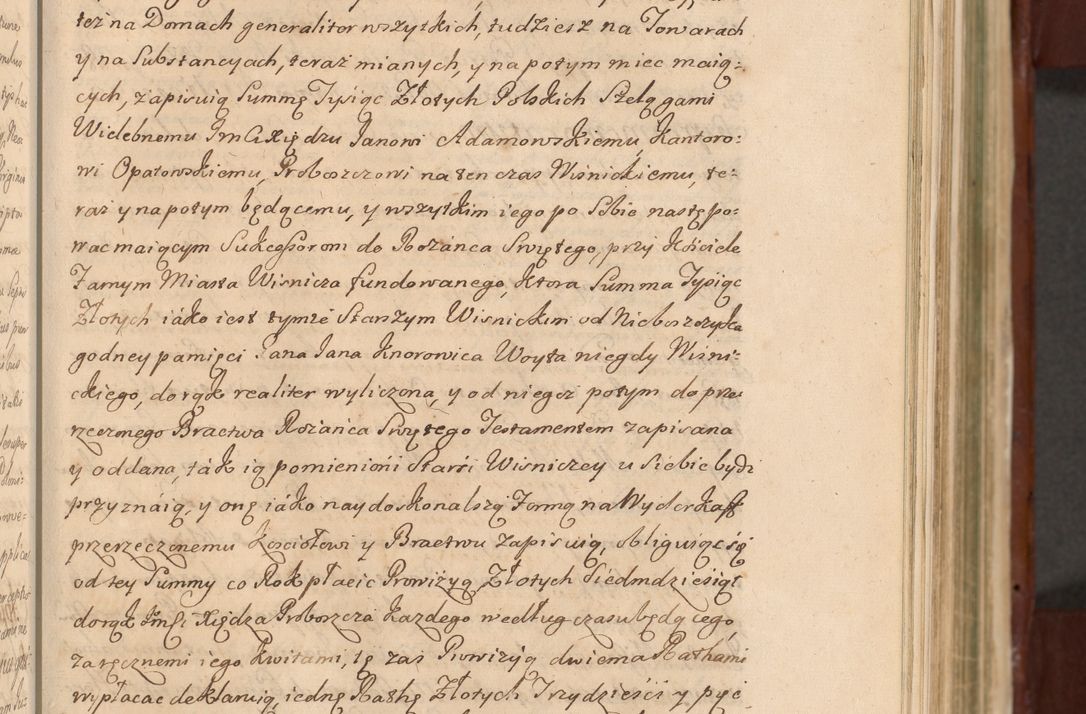 też na Domach generalitor wszytkich, tudziesz na Towarach
y na Substancyach, teraz mianych, y na potym miec maią-
cych, zapisuią Summę Tysiąc Złotych Polskich Szelągami
Wielebnemu Im Xiędzu Janowi Adamowskiemu, Kantoro-
wi Opatowskiemu, Proboszczowi na ten czas Wisnickiemu, te-
raz y na potym będącemu, y wszytkim iego po Sobie następo-
wac maiącym Sukcessorom do Rozanca Swiętego, przy Kosciele
Farnym Miasta Wisnicza fundowanego, Ktora Summa Tysiąc
Złotych iako iest tymże Starszym Wisnickim od Nieboszczyka
godney pamięci Pana Jana Knorowica Woyta niegdy Wisni-
ckiego, do rąk realiter wyliczona, y od niegoz potym do prze
rzeczonego Bractwa Rozanca Swiętego Testamentem zapisana
y oddana, ták ią pomienioni Starsi Wisniczey u siebie bydz
przyznáią, y onę iáko naydoskonalszą Formą na Wyderkaff
przerzeczonemu Kosciołowi y Bractwu zapisuią, obliguiąc się
od tey Summy co Rok płacic Prowizyą Złotych Siedmdziesiąt
do rąk Xiędza Proboszcza kazdego według czasu będącego,
za ręcznemi iego Kwitami, tę zas Prowizyą dwiema Rathami
wypłacac deklaruią, iednę Rathę Złotych Trzydzieści y pięć